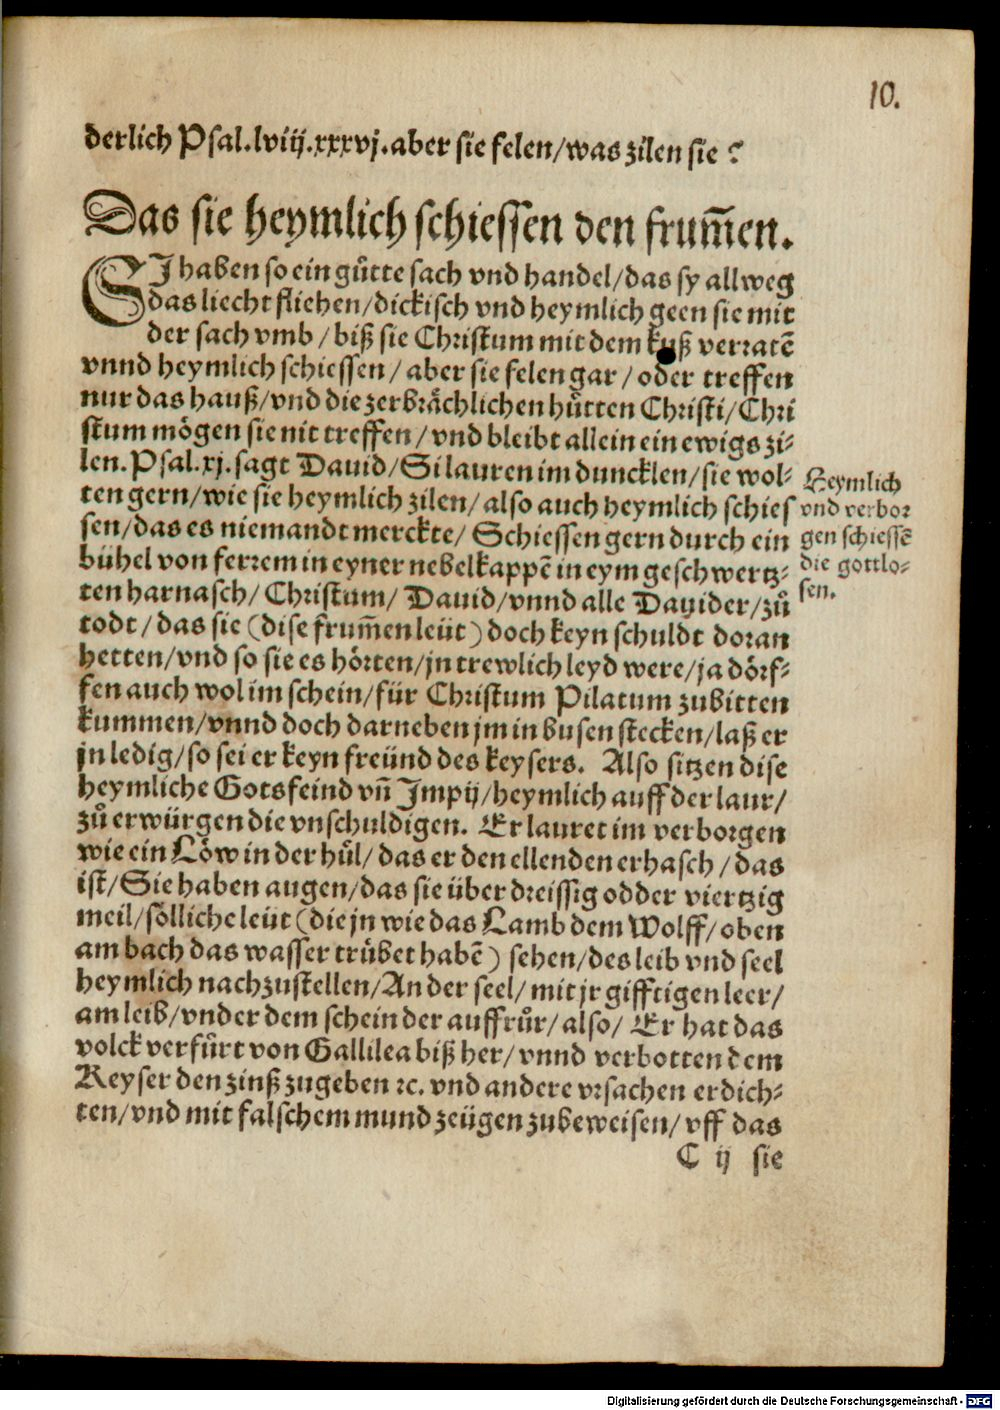 10.
derlich Psal.lviij.xxxvj.aber sie felen/was zilen sie ?
Das sie heymlich schiessen den frum̄en.
SJ haben so ein gůtte sach vnd handel/das sy allweg
das liecht fliehen/dickisch vnd heymlich geen sie mit
der sach vmb / biß sie Christum mit dem kuß verratē
vnnd heymlich schiessen / aber sie felen gar / oder treffen
nur das hauß/vnd die zerbrächlichen hütten Christi/Chri
stum mögen sie nit treffen / vnd bleibt allein ein ewigs zi-
len.Psal.xj.sagt Dauid/Si lauren im duncklen/sie wol-
ten gern/wie sie heymlich zilen/ also auch heymlich schies
sen/das es niemandt merckte/ Schiessen gern durch ein
bühel von ferrem in eyner nebelkappē in eym geschwertz-
ten harnasch/ Christum/ Dauid/vnnd alle Dauider/zů
todt / das sie (dise frum̄en leüt) doch keyn schuldt doran
hetten/vnd so sie es hörten/jn trewlich leyd were/ja dörf-
fen auch wol im schein/für Christum Pilatum zubitten
kummen/vnnd doch darneben jm in busen stecken/laß er
jn ledig/so sei er keyn freünd des keysers. Also sitzen dise
heymliche Gotsfeind vn̄ Jmpij/heymlich auff der laur/
zů erwürgen die vnschuldigen. Er lauret im verborgen
wie ein Löw in der hůl/ das er den ellenden erhasch / das
ist/Sie haben augen/das sie über dreissig odder viertzig
meil/sölliche leüt (die jn wie das Lamb dem Wolff/oben
am bach das wasser trübet habē) sehen/des leib vnd seel
heymlich nachzustellen/An der seel/ mit jr gifftigen leer/
am leib/vnder dem schein der auffrůr/also/ Er hat das
volck verfürt von Gallilea biß her/ vnnd verbotten dem
Keyser den zinß zugeben ꝛc. vnd andere vrsachen erdich-
ten/vnd mit falschem mund zeügen zubeweisen/ vff das
C ij sie
Heymlich
vnd verbor
gen schiessē
die gottlo-
sen.
Digitalisierung gefördert durch die Deutsche Forschungsgemeinschaft - DFG